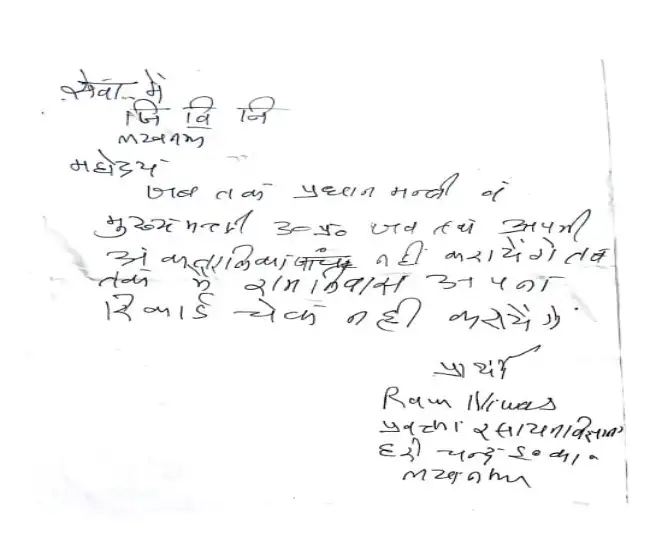 सेवा में
जि वि नि
लखनऊ
महोदय
जब तक प्रधान मन्त्री व
मुख्य मन्त्री उ०प्र० जब तक अपनी
अंकतालिका जाँच नहीं करायेंगे तब
तक मैं रामनिवास अपना
रिकार्ड चेक नही करायेंगे
प्रार्थी
Ram Niwas
प्रवक्ता रसायन विज्ञान
हरी चन्द इ० का०
लखनऊ